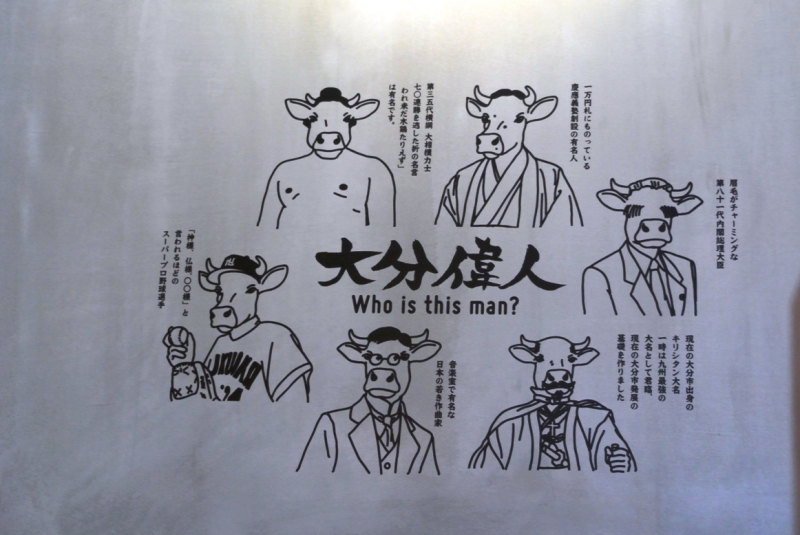 第三五代横綱 大相撲力士
七〇連勝を逃した折の名言
「われ未だ木鶏たりえず」
は有名です。
一万円札にものっている
慶應義塾創設の有名人
眉毛がチャーミングな
第八十一代内閣総理大臣
「神様、仏様、〇〇様」と
言われるほどの
スーパープロ野球選手
大分偉人
Who is this man?
音楽室で有名な
日本の若き作曲家
現在の大分市出身の
キリシタン大名
一時は九州最強の
大名として君臨、
現在の大分市発展の
基礎を作りました